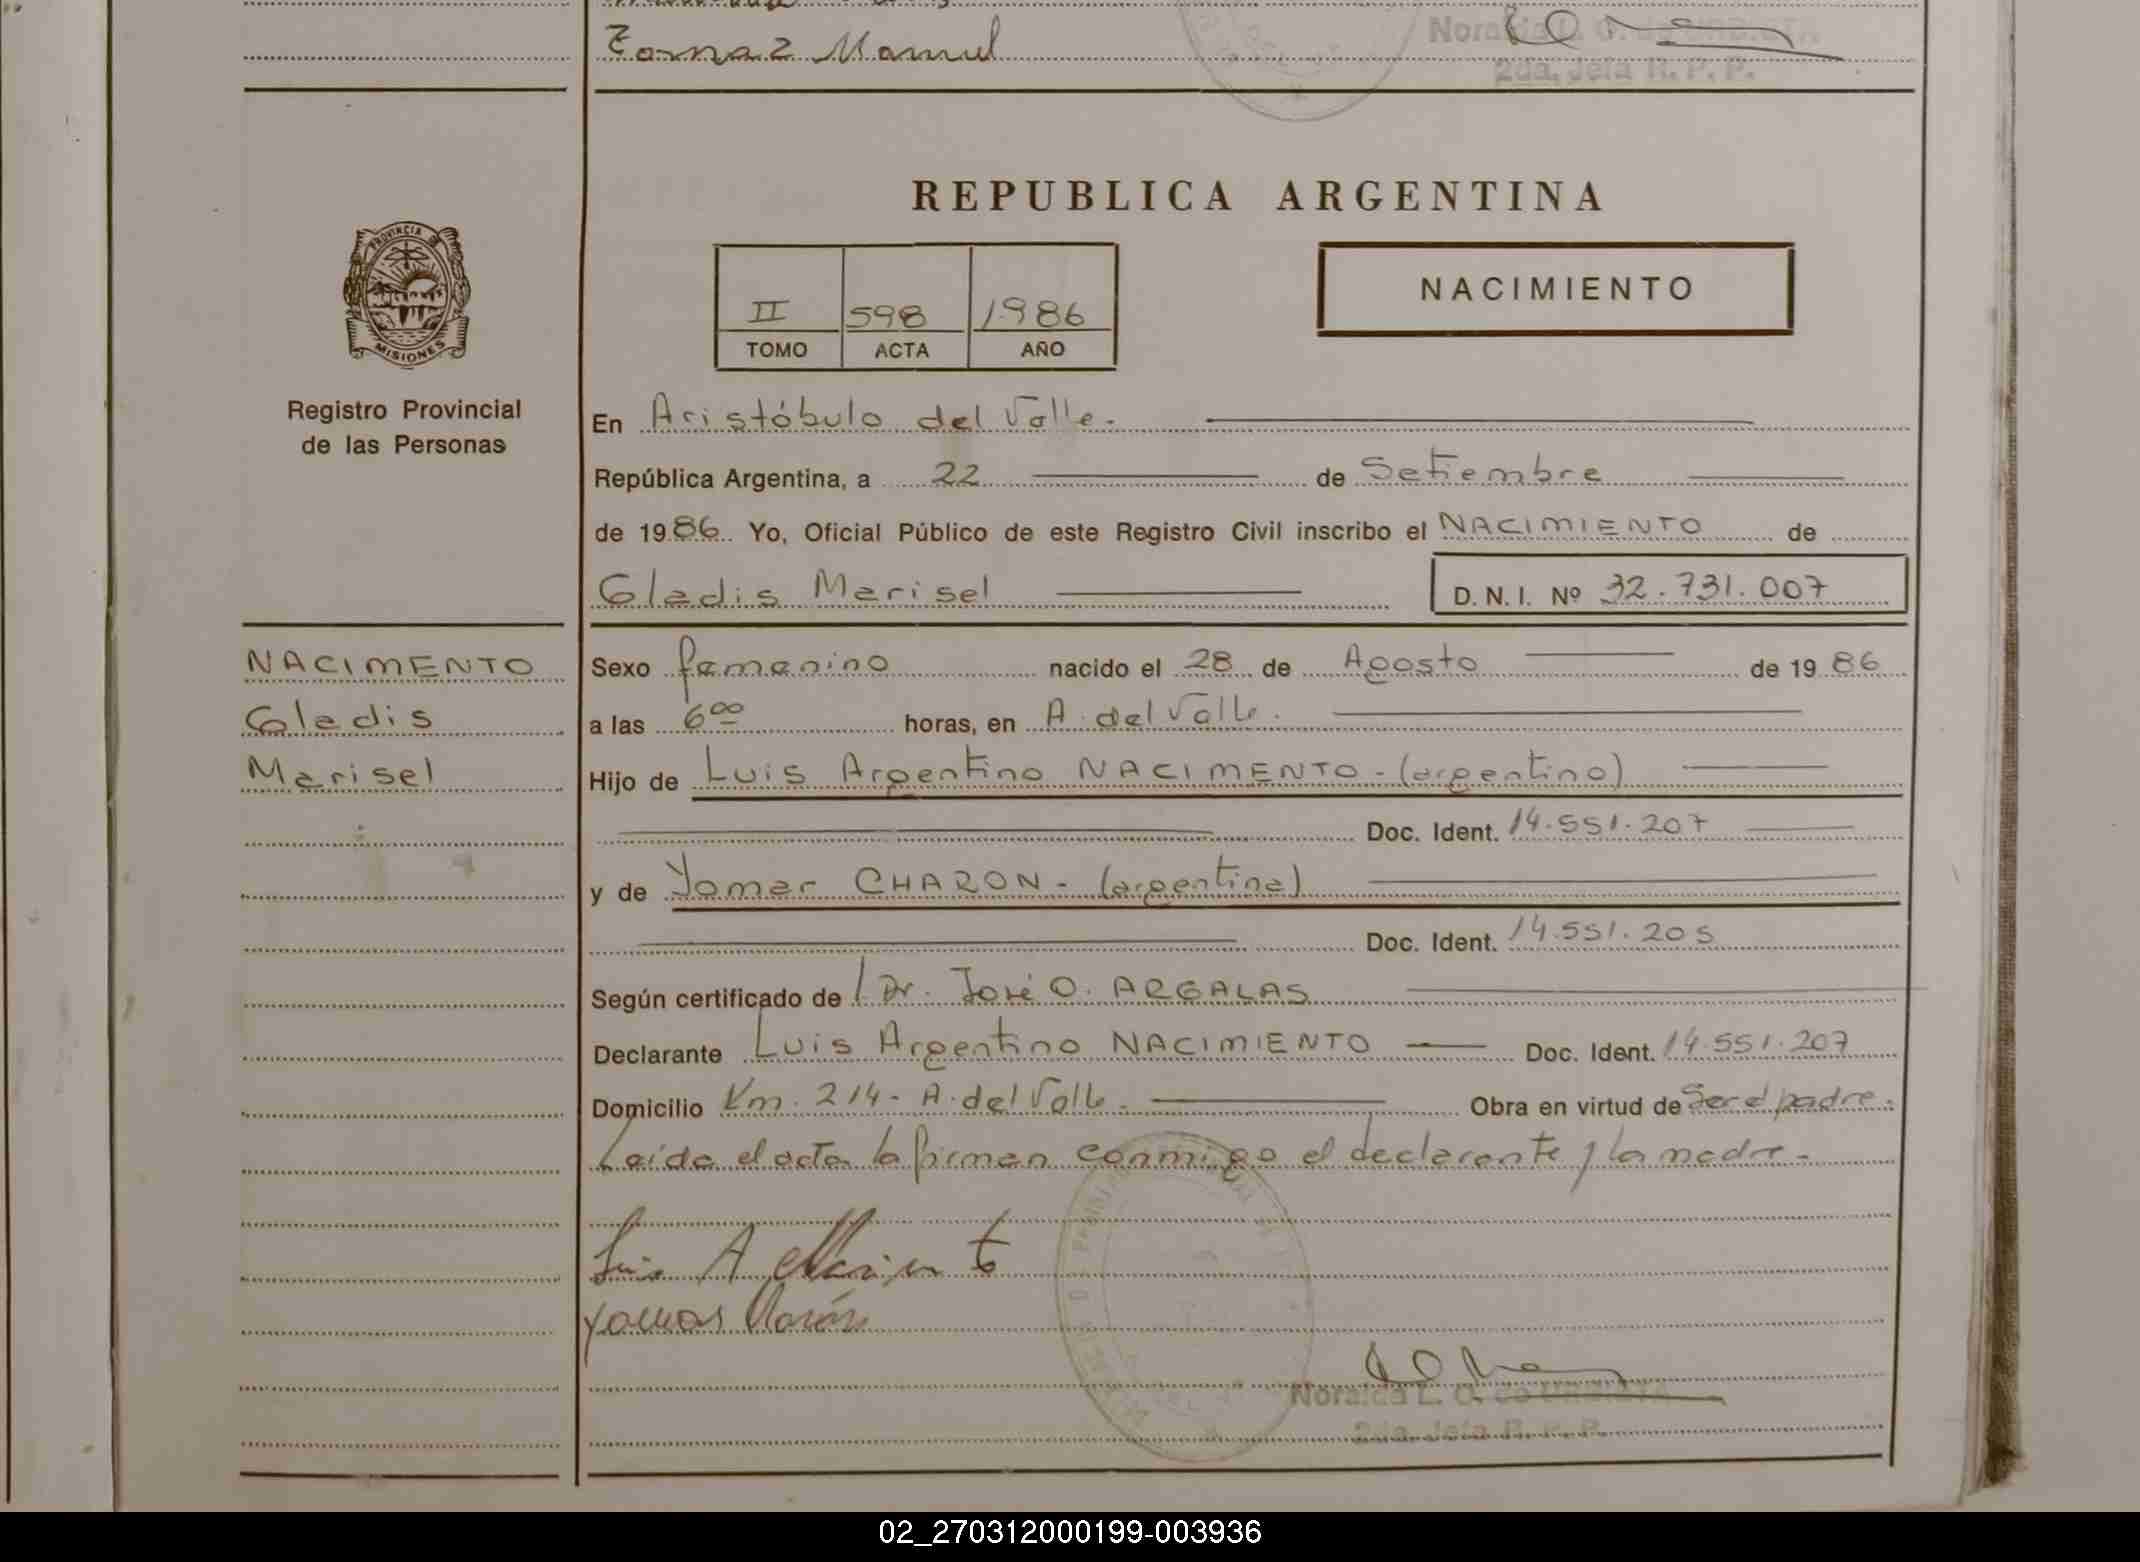 Manuel
Noralda L. O. de URBIETA
2da. Jefa R. P. P.
REPUBLICA ARGENTINA
PROVINCIA DE
MISIONES
II
598
1986
NACIMIENTO
TOMO
ACTA
AÑO
Registro Provincial
de las Personas
En Aristóbulo del Valle.
República Argentina, a 22 de Setiembre
de 1986. Yo, Oficial Público de este Registro Civil inscribo el NACIMIENTO de
Gladis Marisel
D. N. I. Nº 32.731.007
NACIMENTO
Gladis
Marisel
Sexo femenino nacido el 28 de Agosto de 1986
a las 6 00 horas, en A. del Valle.
Hijo de Luis Argentino NACIMENTO - (argentino)
Doc. Ident. 14.551.207
y de Yamar CHARON - (argentina)
Doc. Ident. 14.551.205
Según certificado de Dr. José O. ARGALAS
Declarante Luis Argentino NACIMIENTO Doc. Ident. 14.551.207
Domicilio Km. 214 - A. del Valle. Obra en virtud de Ser el padre.
Leída el acta la firman conmigo el declarante y la madre.
Luis A Nacimento
Noralda L. O. de URBIETA
2da. Jefa R. P. P.
02_270312000199-003936